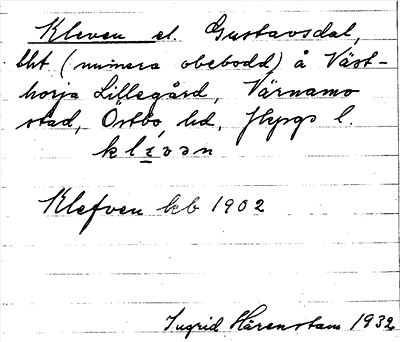 Kleven el. Gustavsdal,
bht (numera obebodd) å Väst-
horja Lillegård, Värnamo
stad, Östbo hd, Jkpgs l.
klevən
Klefven kb 1902
Ingrid Härenstam 1932